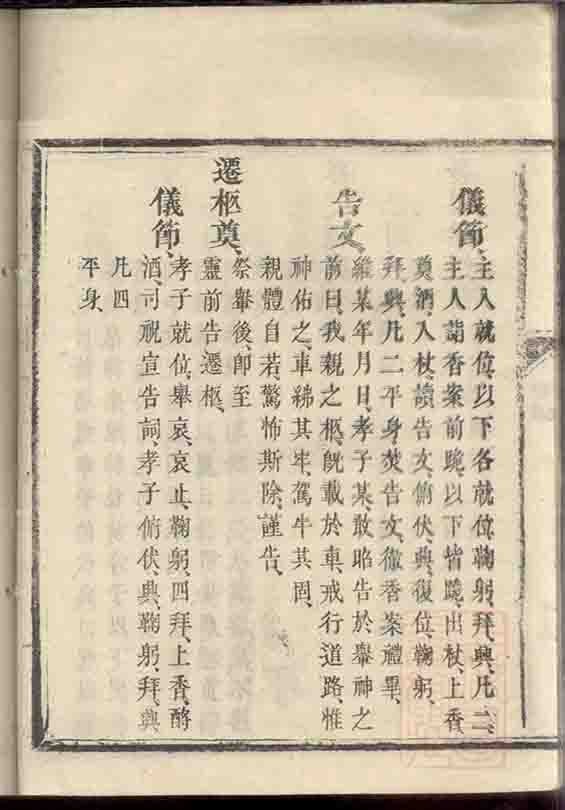 儀節、主入就位、以下各就位、鞠躬、拜、興、凡二、
主人詣香案前跪、以下皆跪、出杖、上香
奠酒、入杖、讀告文、俯伏、興、復位、鞠躬、
拜、興、凡二、平身、焚告文、徹香案、禮畢、
告文、維某年月日、孝子某、敢昭告於轝神之
前曰、我親之柩、旣載於車、戒行道路、惟
神佑之、車綈其牢、駕牛其罔、
親體自若、驚怖斯除、謹告、
遷柩奠、祭轝後、卽至
靈前告遷柩、
儀節、孝子就位、舉哀、哀止、鞠躬、四拜、上香、酹
酒、司祝宣告詞、孝子俯伏、興、鞠躬、拜、興
凡四
平身、